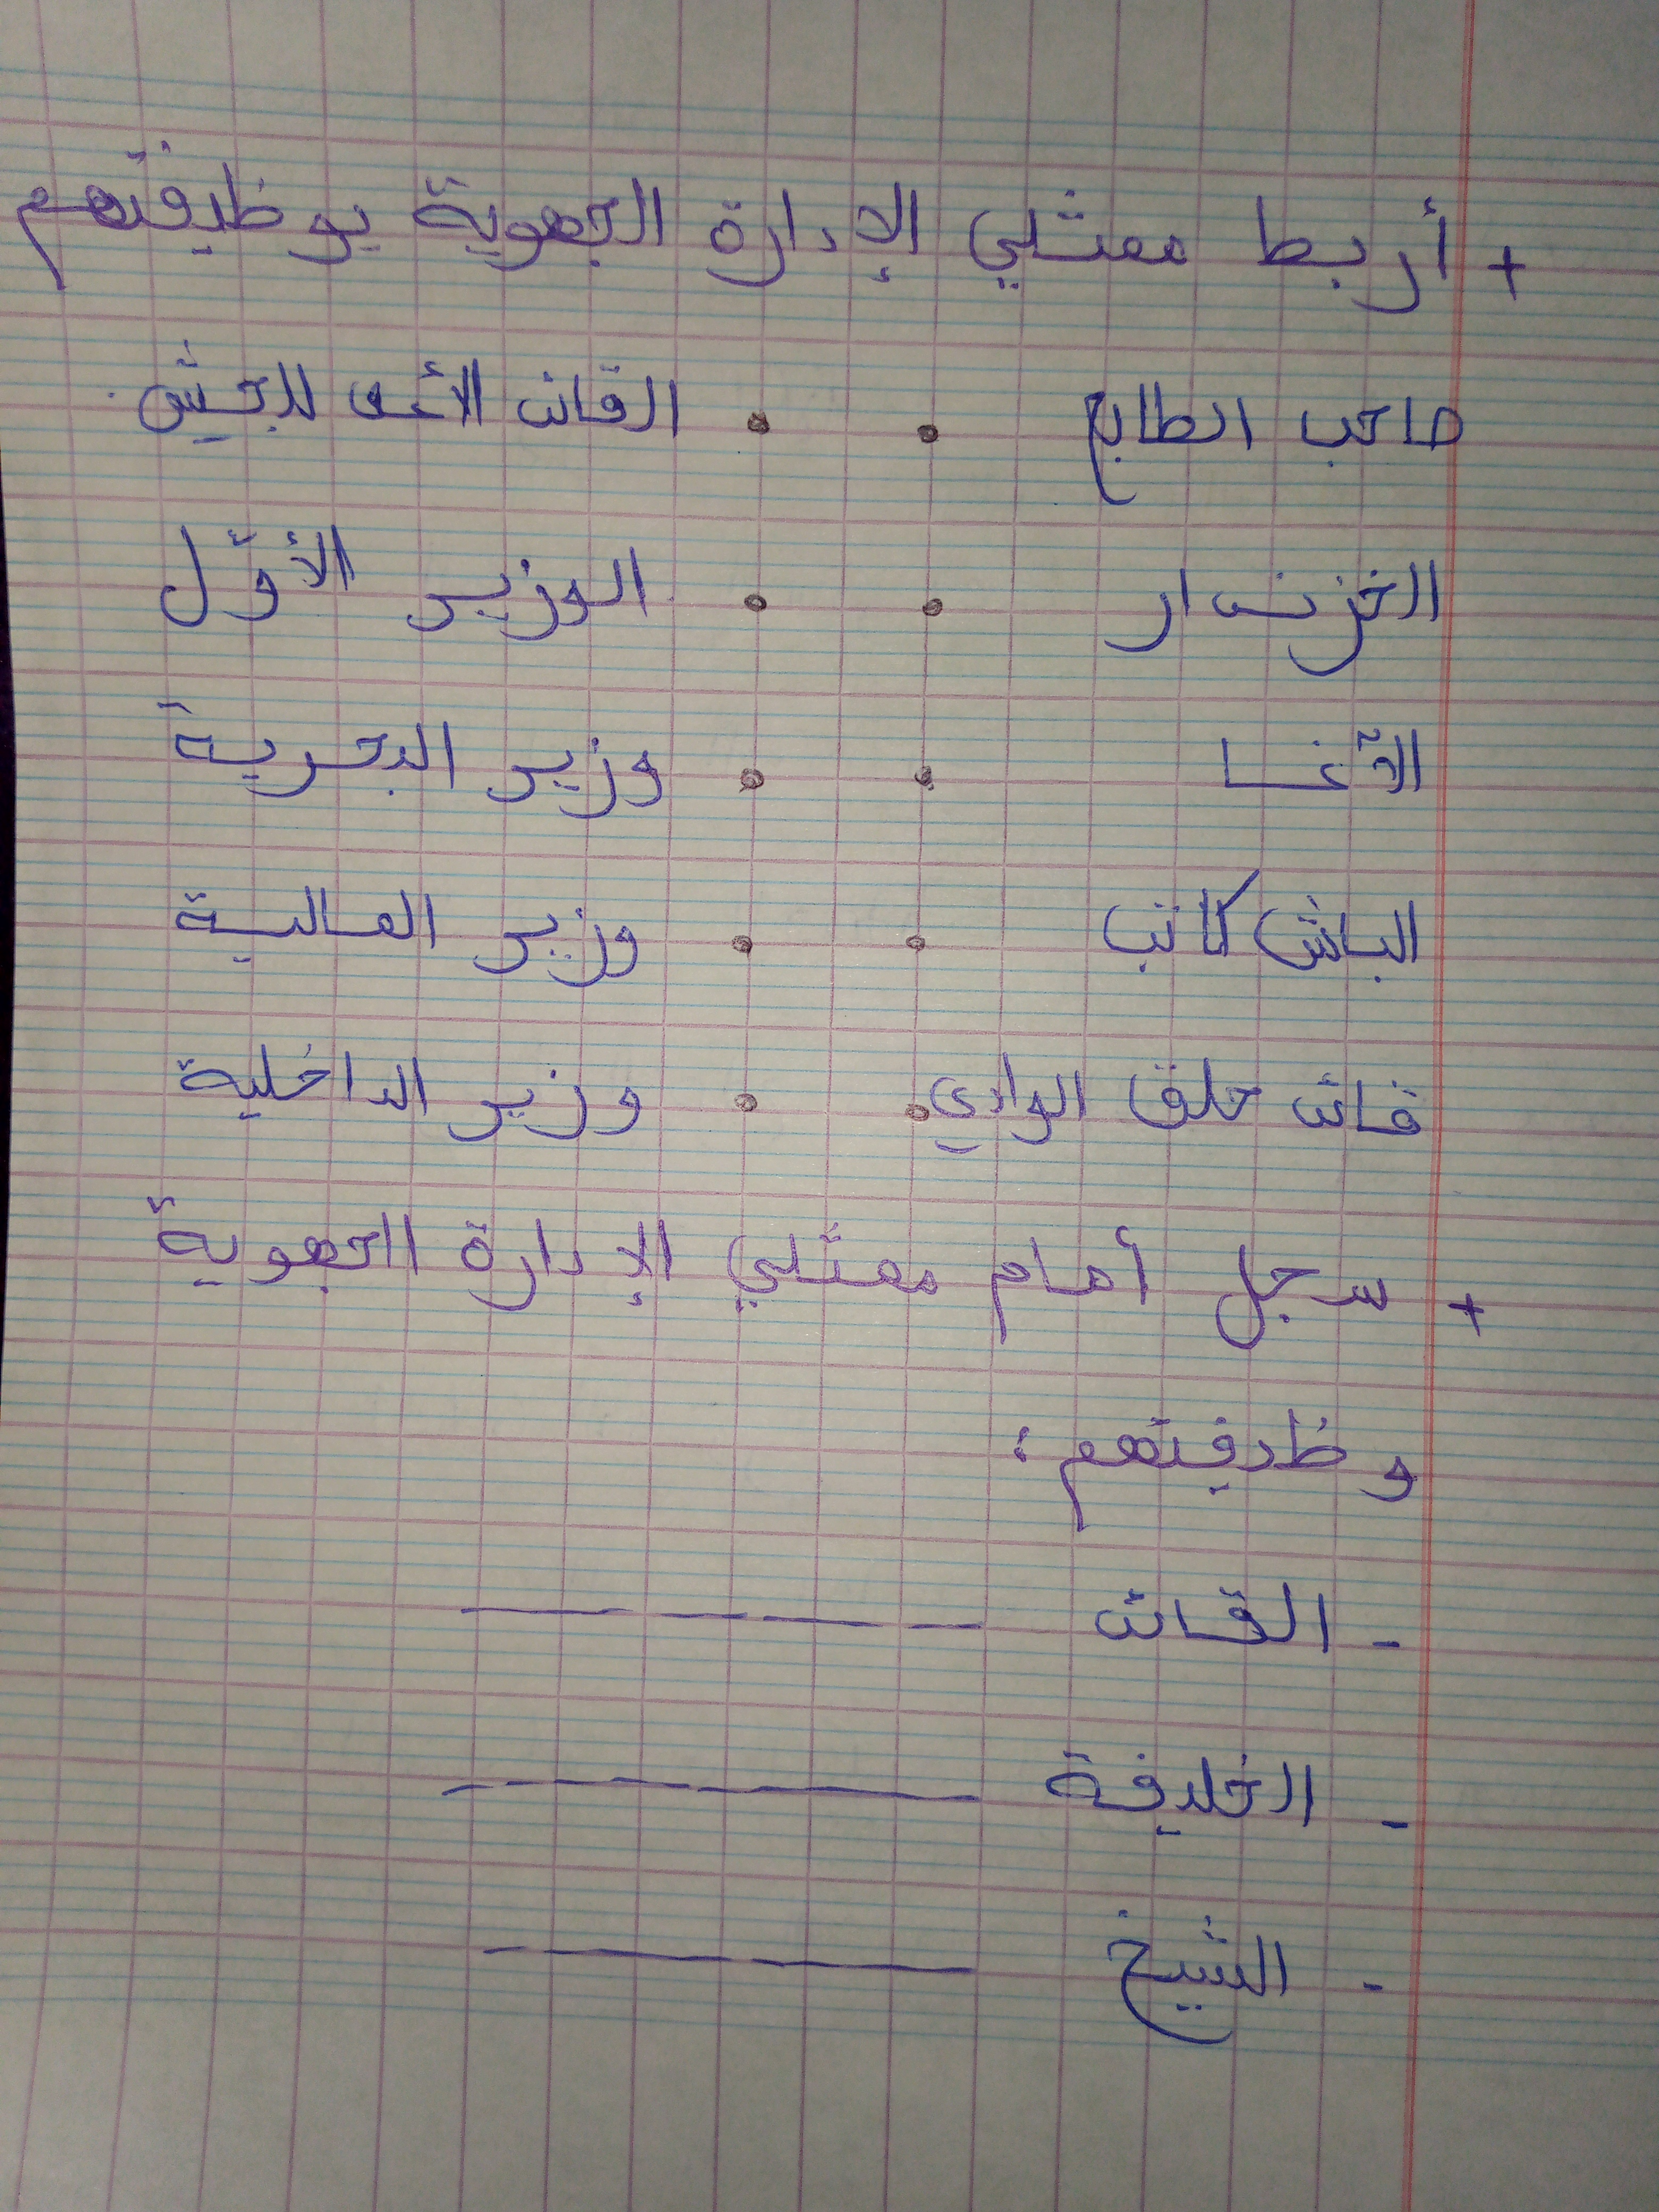 + أربط ممثلي الإدارة الجهوية بوظيفتهم
صاحب الطابع • • القائد الأعلى للجيش.
الخزندار • • الوزير الأوّل
الآغا • • وزير البحرية
الباش كاتب • • وزير المالية
قائد حلق الوادي • • وزير الداخلية
+ سجل أمام ممثلي الإدارة الجهوية
وظيفتهم :
- القائد ـــــــــ
- الخليفة ـــــــــ
- الشيخ ـــــــــ